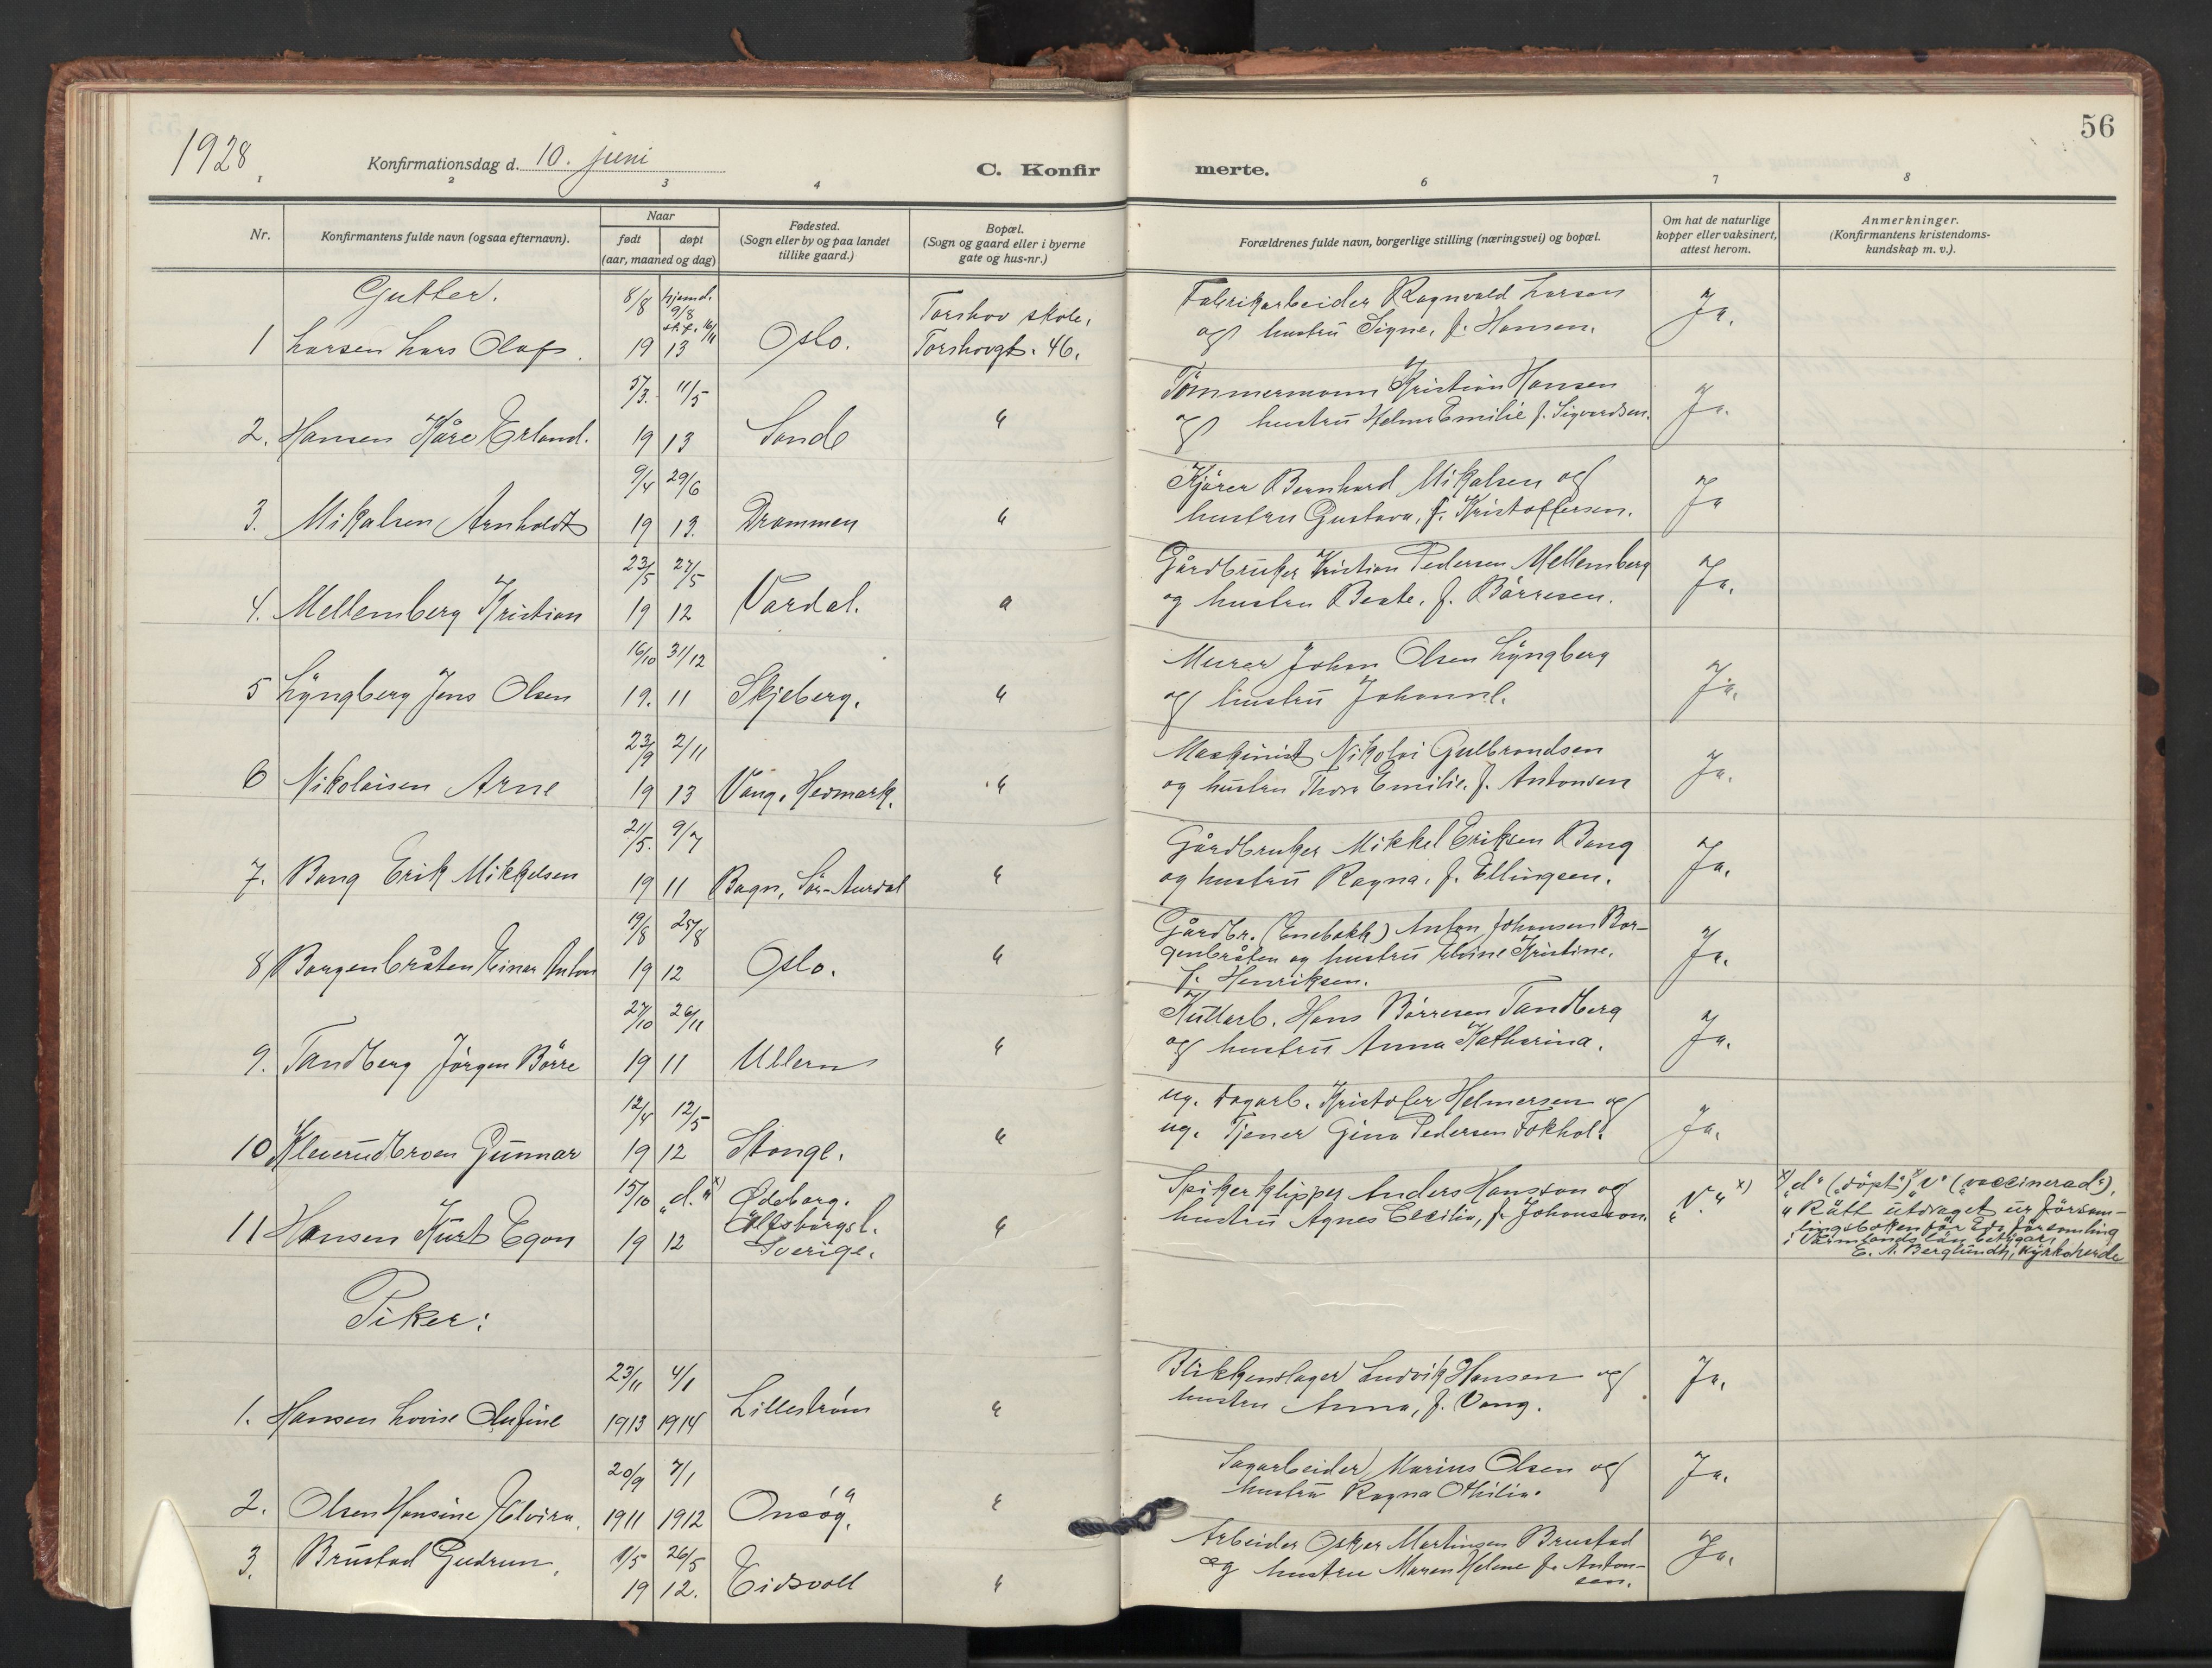 1928
Konfirmationsdag d. 10. juni
C. Konfirmerte.
56
1 2 3 4 6 7 8
Nr.
Konfirmantens fulde navn (ogsaa efternavn).
Naar
født
døpt
(aar, maaned og dag)
Fødested.
(Sogn eller by og paa landet
tillike gaard.)
Bopæl.
(Sogn og gaard eller i byerne
gate og hus-nr.)
Forældrenes fulde navn, borgerlige stilling (næringsvei) og bopæl.
Om hat de naturlige
kopper eller vaksinert,
attest herom.
Anmerkninger.
(Konfirmantens kristendoms-
kundskap m. v.).
Gutter.
8/8 hjemd. 9/8 st.f. 16/11
1 Larsen Lars Olaf. 19 13 Oslo.
Torshov skole,
Torshovgt. 46.
Fabrikarbeider Ragnvald Larsen
og hustru Signe, f. Hansen.
Ja.
11/5
2. Hansen Kåre Erland. 19 13 Sande "
Tømmermann Kristian Hansen
og hustru Helma Emilie f. Sigvardsen.
Ja.
9/4 29/6
3. Mikalsen Arnholdt 19 13. Drammen "
Kjører Bernhard Mikalsen og
hustru Gustava, f. Kristoffersen.
Ja
23/5 27/5
4. Mellemberg Kristian 19 12 Vardal. "
Gårdbruker Kristian Pedersen Mellemberg
og hustru Beate, f. Børresen.
Ja.
16/10 31/12
5 Lyngberg Jens Olsen 19. 11 Skjeberg. "
Murer Johan Olsen Lyngberg
og hustru Johanne.
Ja.
23/9 2/11
6 Nikolaisen Arne 19 13 Vang, Hedmark. "
Maskinist Nikolai Gulbrandsen
og hustru Thora Emilie, f. Antonsen
Ja.
21/5. 9/7
7. Bang Erik Mikkelsen 19 11 Bagn, Sør-Aurdal "
Gårdbruker Mikkel Eriksen Bang
og hustru Ragna, f. Ellingsen.
Ja.
19/8 25/8
8 Borgenbråten Einar Anton 19 12 Oslo. "
Gårdbr. (Enebakk) Anton Johansen Bor-
genbråten og hustru Elvine Kristine,
f. Henriksen.
Ja.
27/10 26/11
9. Tandberg Jørgen Børre 19 11 Ullern "
Hans Børresen Tandberg
og hustru Anna Katharina.
Ja.
12/4 12/5
10 Kleverudbroen Gunnar 19 12 Stange. "
ug. dagarb. Kristofer Helmersen og
ug. Tjener Gina Pedersen Fokhol.
Ja.
15/10 "d." x)
11 Hansen Kurt Egon 19 12
Ødeborg.
Älfsborgsl.
Sverige.
"
Spikerklipper Anders Hansson og
hustru Agnes Cecilia, f. Johansson.
"V." x)
x) "d" ("döpt") "v" ("vaccinerad").
"Rätt utdraget ur försam-
lingsboken för Eds församling
i Värmlands län betygar,
E. A. Berglundh, kyrkoherde
Piker:
23/11 4/1
1. Hansen Lovise Olufine 1913 1914 Lillestrøm "
Blikkenslager Ludvik Hansen og
hustru Anna, f. Vang.
Ja.
20/9 7/1
2. Olsen Hansine Elvira. 1911 1912 Onsøy. "
Sagarbeider Marius Olsen og
hustru Ragna Othilia.
Ja.
1/5 26/5
3. Brustad Gudrun. 19 12. Eidsvoll "
Arbeider Oskar Martinsen Brustad
og hustru Maren Helene f. Anton-
sen.
Ja.